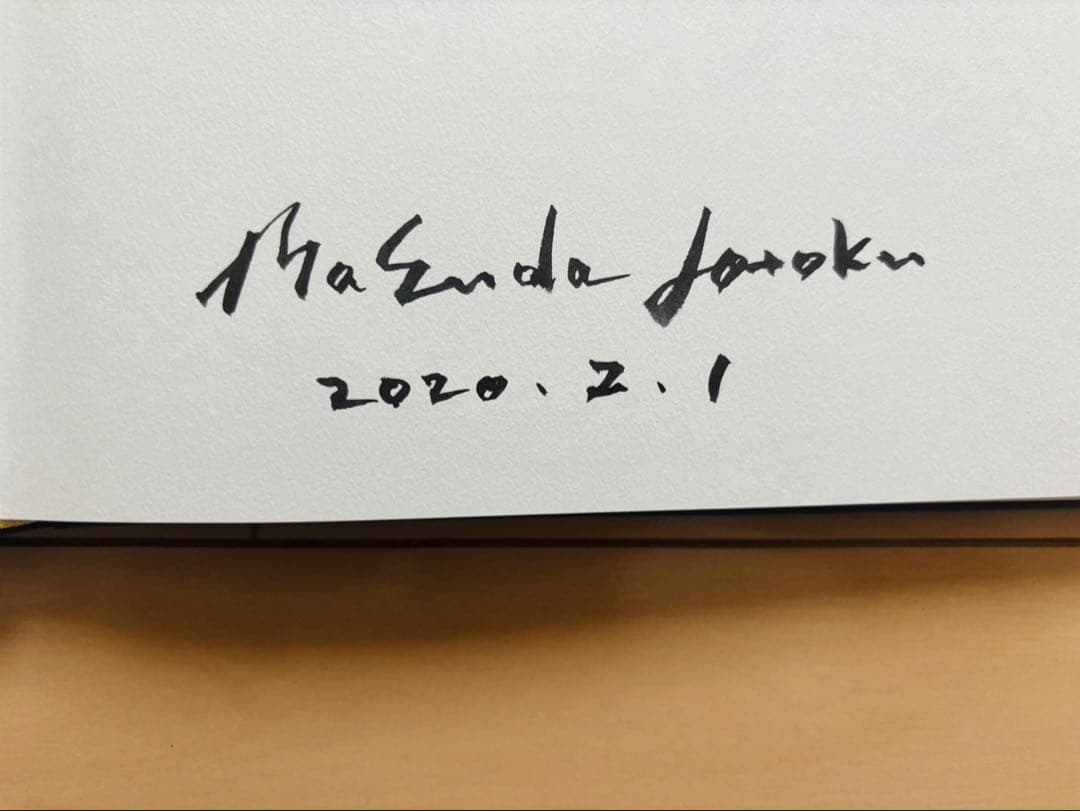 Masuda Jotoku
2020.2.1